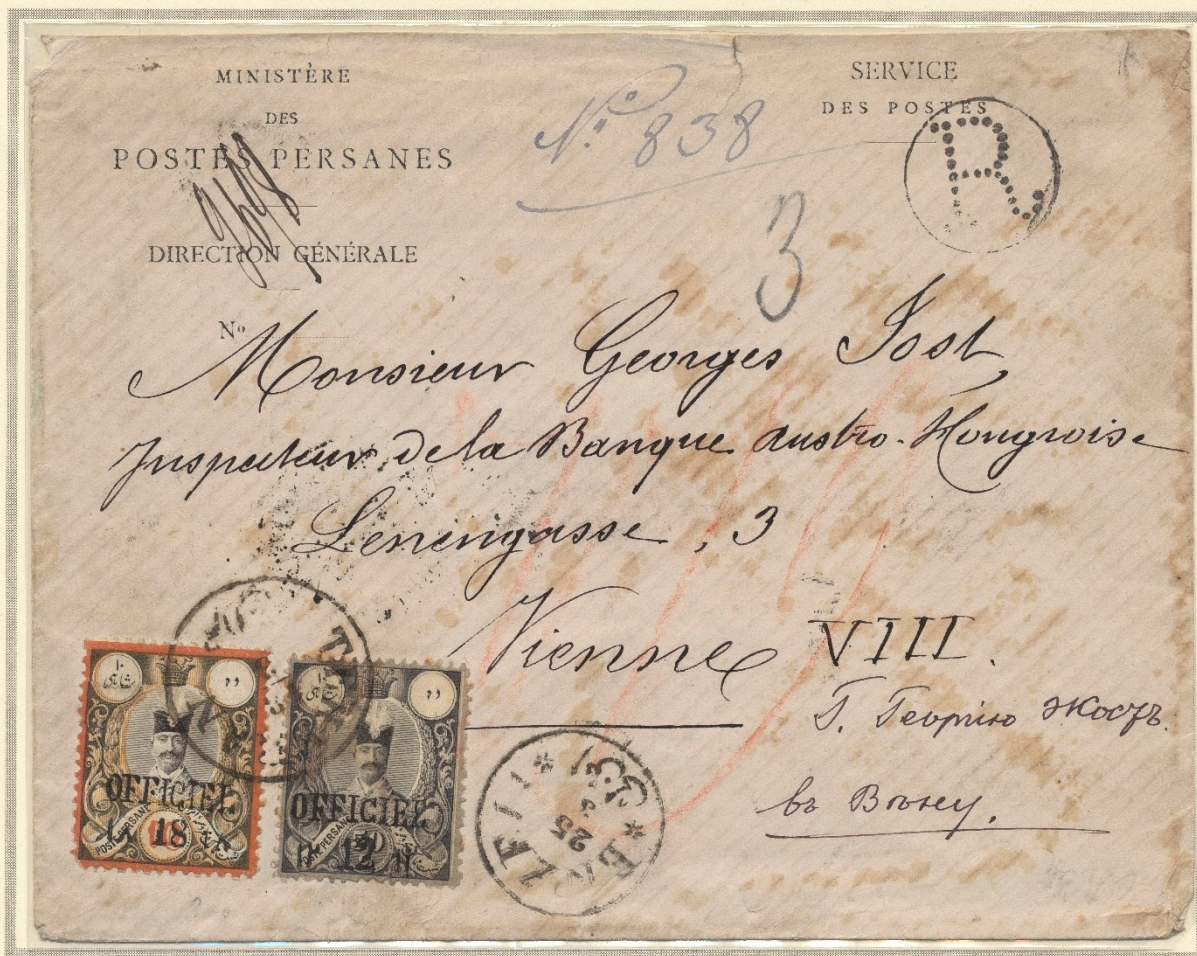 MINISTÈRE
DES
POSTES PERSANES
DIRECTION GÉNÉRALE
Nº
SERVICE
DES POSTES
R
Nº 838
3
Monsieur Georges Jost,
Inspecteur de la Banque Austro-Hongroise
Lenengasse, 3
Vienne VIII.
Г. Георгію Жостъ
въ Вѣну.
OFFICIEL
18 ١٨
POSTE PERSANE
OFFICIEL
12 ١٢
POSTE PERSANE
* ENZELI *
25